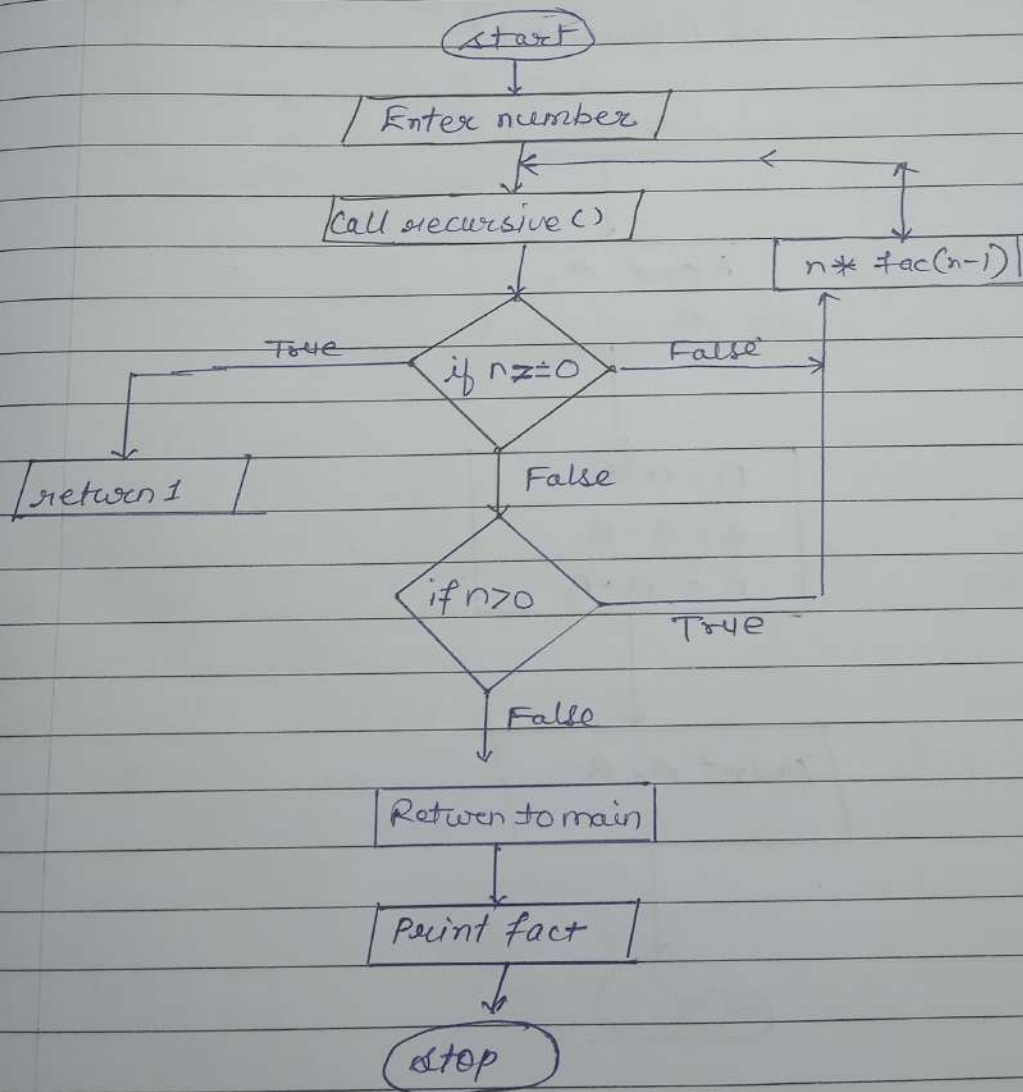 start
Enter number
Call recursive ()
n* fac(n-1)
True
if n==0
False
False
return 1
if n>0
True
False
Return to main
Print fact
stop